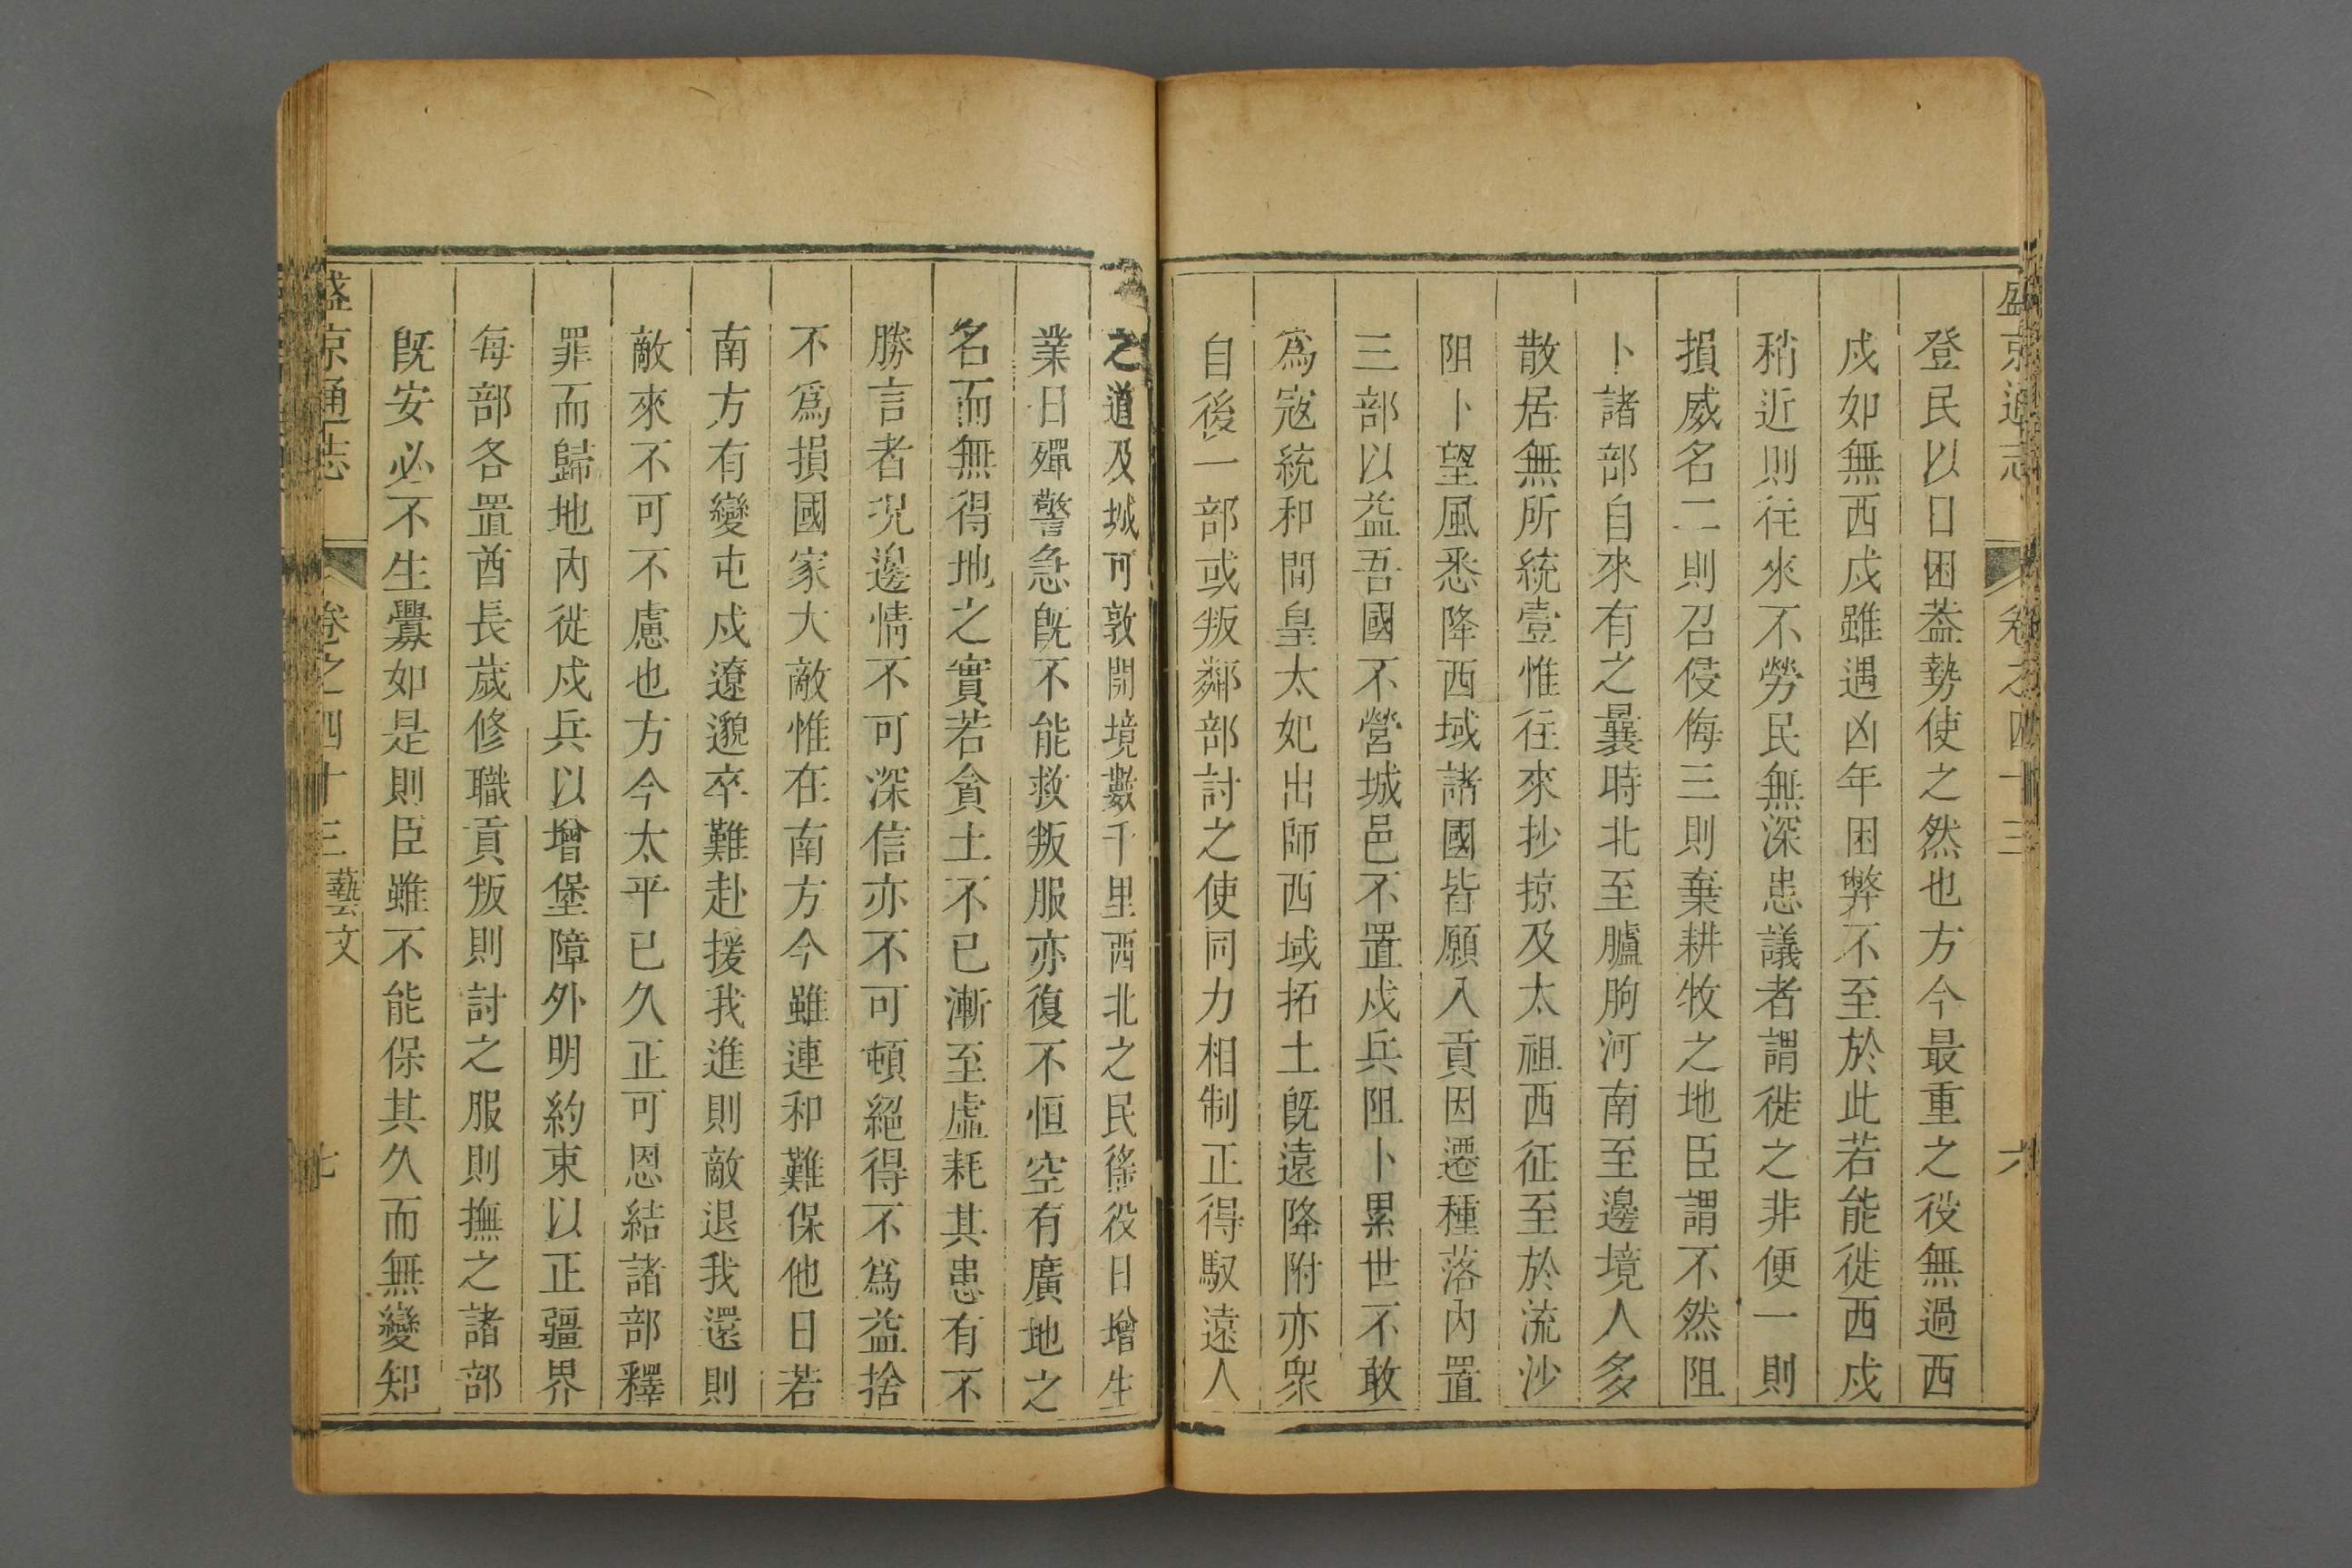 盛京通志 卷之四十三 六
登民以日困蓋勢使之然也方今最重之役無過西
戍如無西戍雖遇凶年困弊不至於此若能徙西戍
稍近則往來不勞民無深患議者謂徙之非便一則
損威名二則召侵侮三則棄耕牧之地臣謂不然阻
卜諸部自來有之曩時北至臚朐河南至邊境人多
散居無所統壹惟往來抄掠及太祖西征至於流沙
阻卜望風悉降西域諸國皆願入貢因遷種落內置
三部以益吾國不營城邑不置戍兵阻卜累世不敢
為寇統和間皇太妃出師西域拓土旣遠降附亦衆
自後一部或叛鄰部討之使同力相制正得馭遠人
之道及城可敦開境數千里西北之民徭役日增生
業日殫警急旣不能救叛服亦復不恒空有廣地之
名而無得地之實若貪土不已漸至虛耗其患有不
勝言者況邊情不可深信亦不可頓絕得不爲益捨
不爲損國家大敵惟在南方今雖連和難保他日若
南方有變屯戍遼邈卒難赴援我進則敵退我還則
敵來不可不慮也方今太平已久正可恩結諸部釋
罪而歸地內徙戍兵以增堡障外明約束以正疆界
每部各置酋長歲修職貢叛則討之服則撫之諸部
旣安必不生釁如是則臣雖不能保其久而無變知
盛京通志 卷之四十三 藝文 七